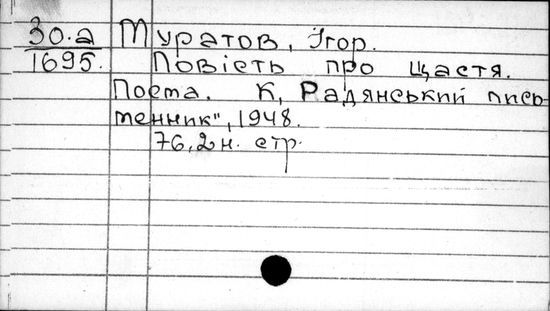 30.а Муратов, Ігор.
1695. Повість про щастя.
Поема. К, Радянський пись-
менник", 1948.
76, 2 н. стр.